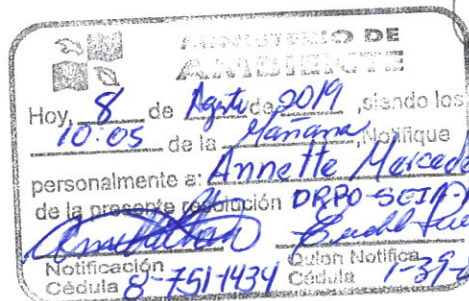 MINISTERIO DE
AMBIENTE
Hoy, 8 de Agosto de 2019, siendo los
10:05 de la Mañana, Notifique
personalmente a: Annette Mercado
de la presente resolución DRPO-SEIA-
Notificación Quien Notifica
Cédula 8-751-1434 Cédula 1-39-8